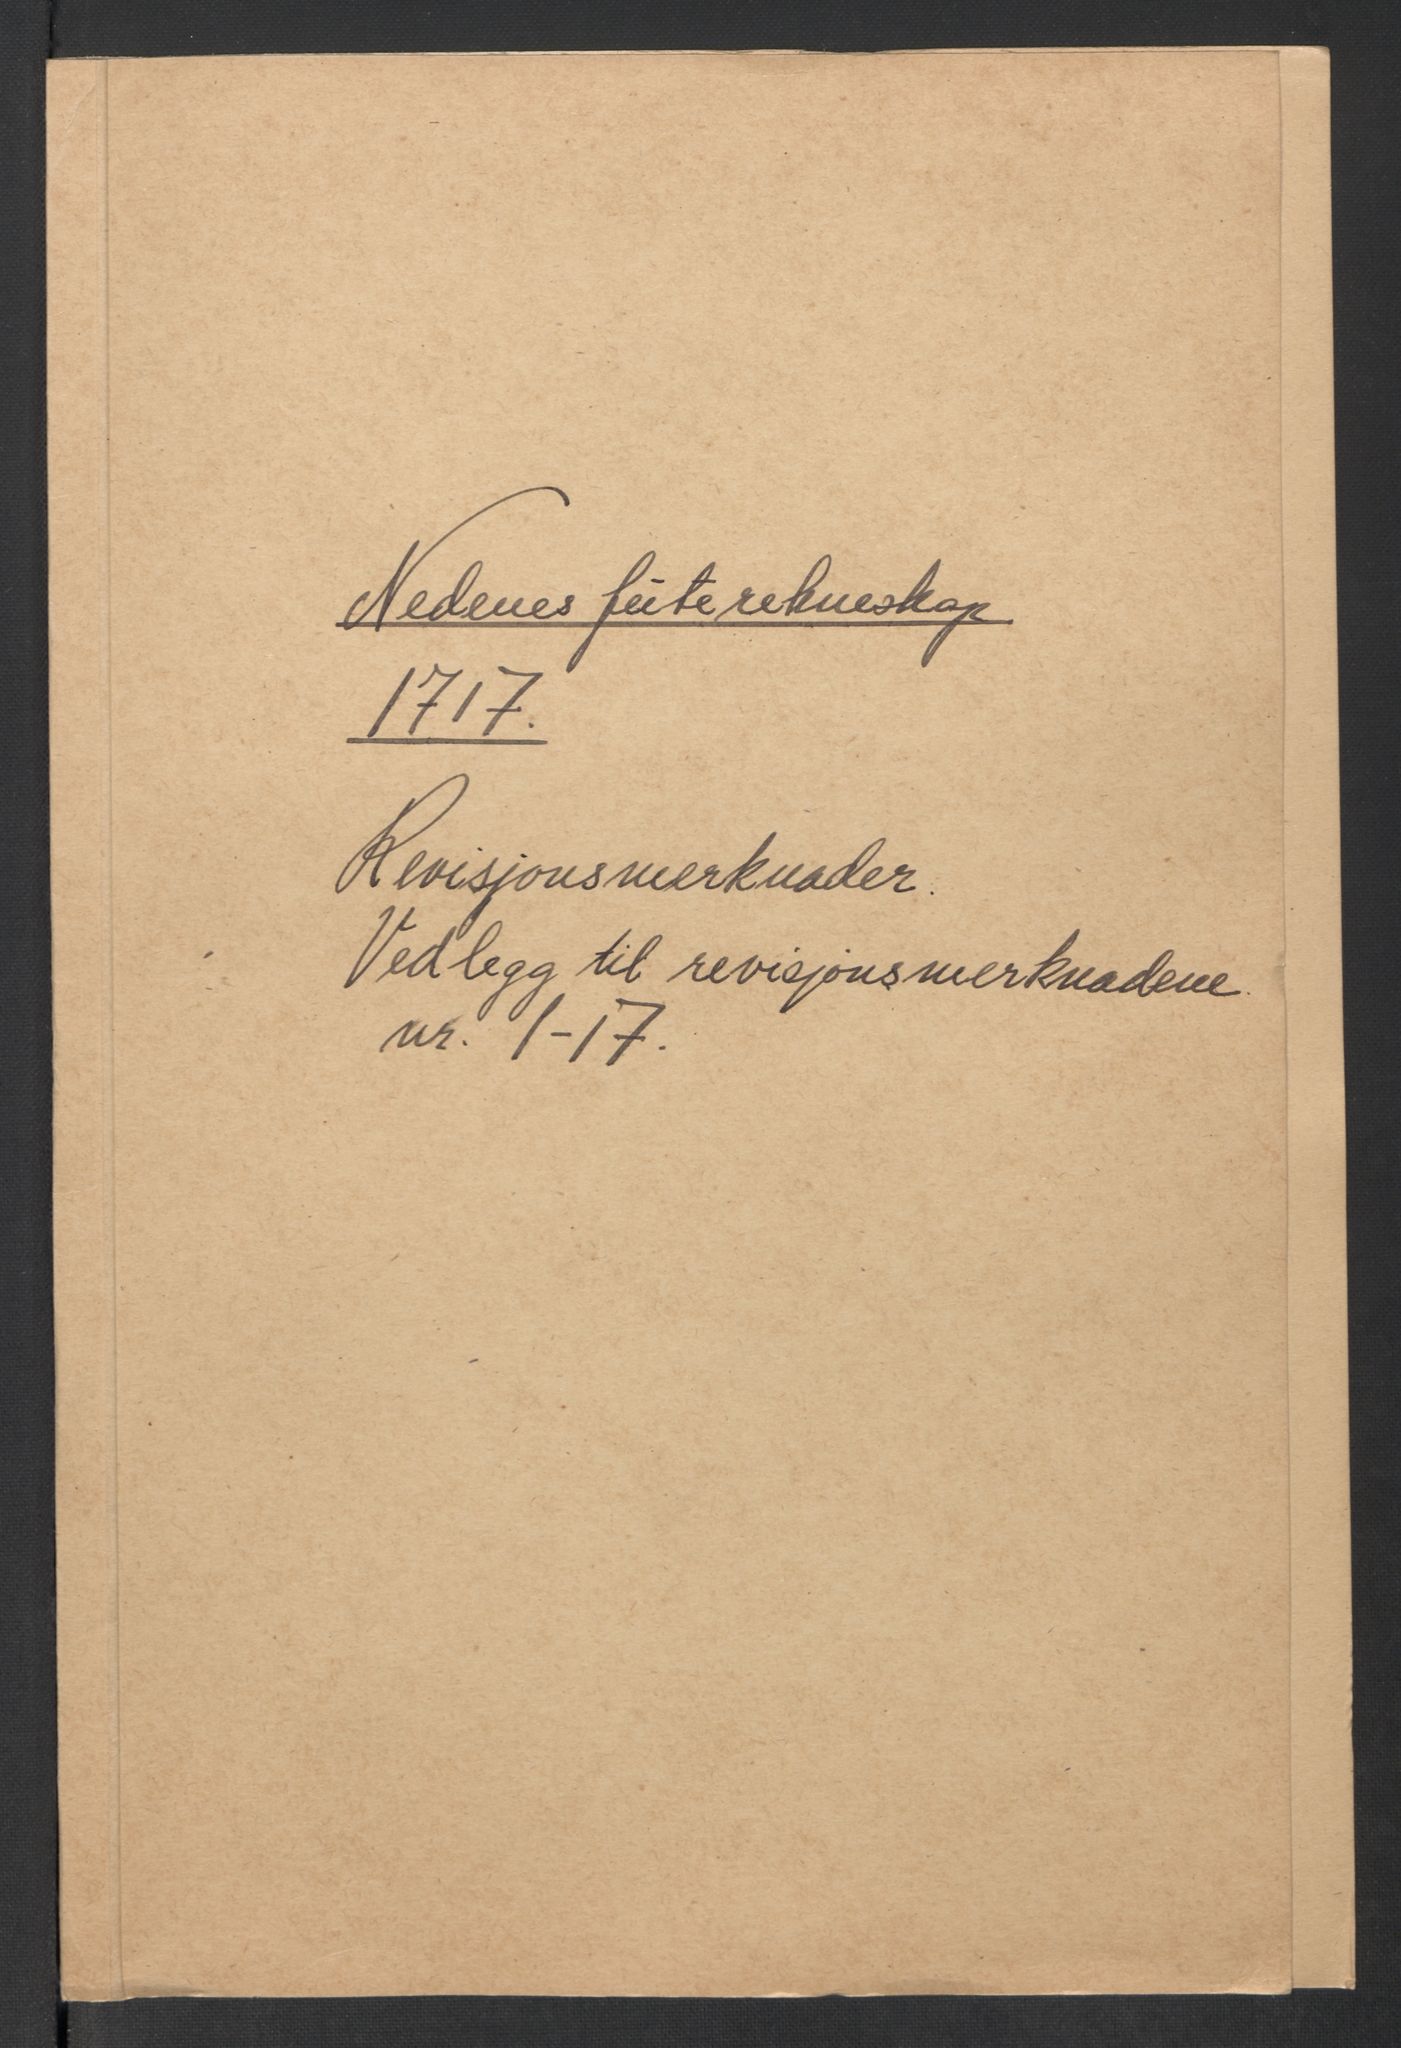 Nedenes futerekneskap
1717.
Revisjonsmerknader.
Vedlegg til revisjonsmerknadene.
nr. 1-17.